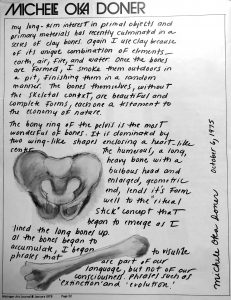 MICHELE OKA DONER
my long-term interest in primal objects and
primary materials has recently culminated in a
series of clay bones. Again I use clay because
of its unique combination of elements –
earth, air, fire, and water. Once the bones
are formed, I smoke them outdoors in
a pit, finishing them in a random
manner. The bones themselves, without
the skeletal context, are beautiful and
complete forms, each one a testament to
the economy of nature.
The bony ring of the pelvis is the most
wonderful of bones. It is dominated by
two wing-like shapes enclosing a heart-like
center. The humerus, a long,
heavy bone with a
bulbous head and
enlarged, geometric
end, lends its form
well to the "ritual
Stick" concept that
began to emerge as I
lined the long bones up.
as the bones began to
accumulate, I began to visualize
phrases that are part of our
language, but not of our
consciousness. Phrases such as
'extinction' and 'evolution'.
michele oka doner october 6, 1975
Michigan Art Journal January 1976 Page 22